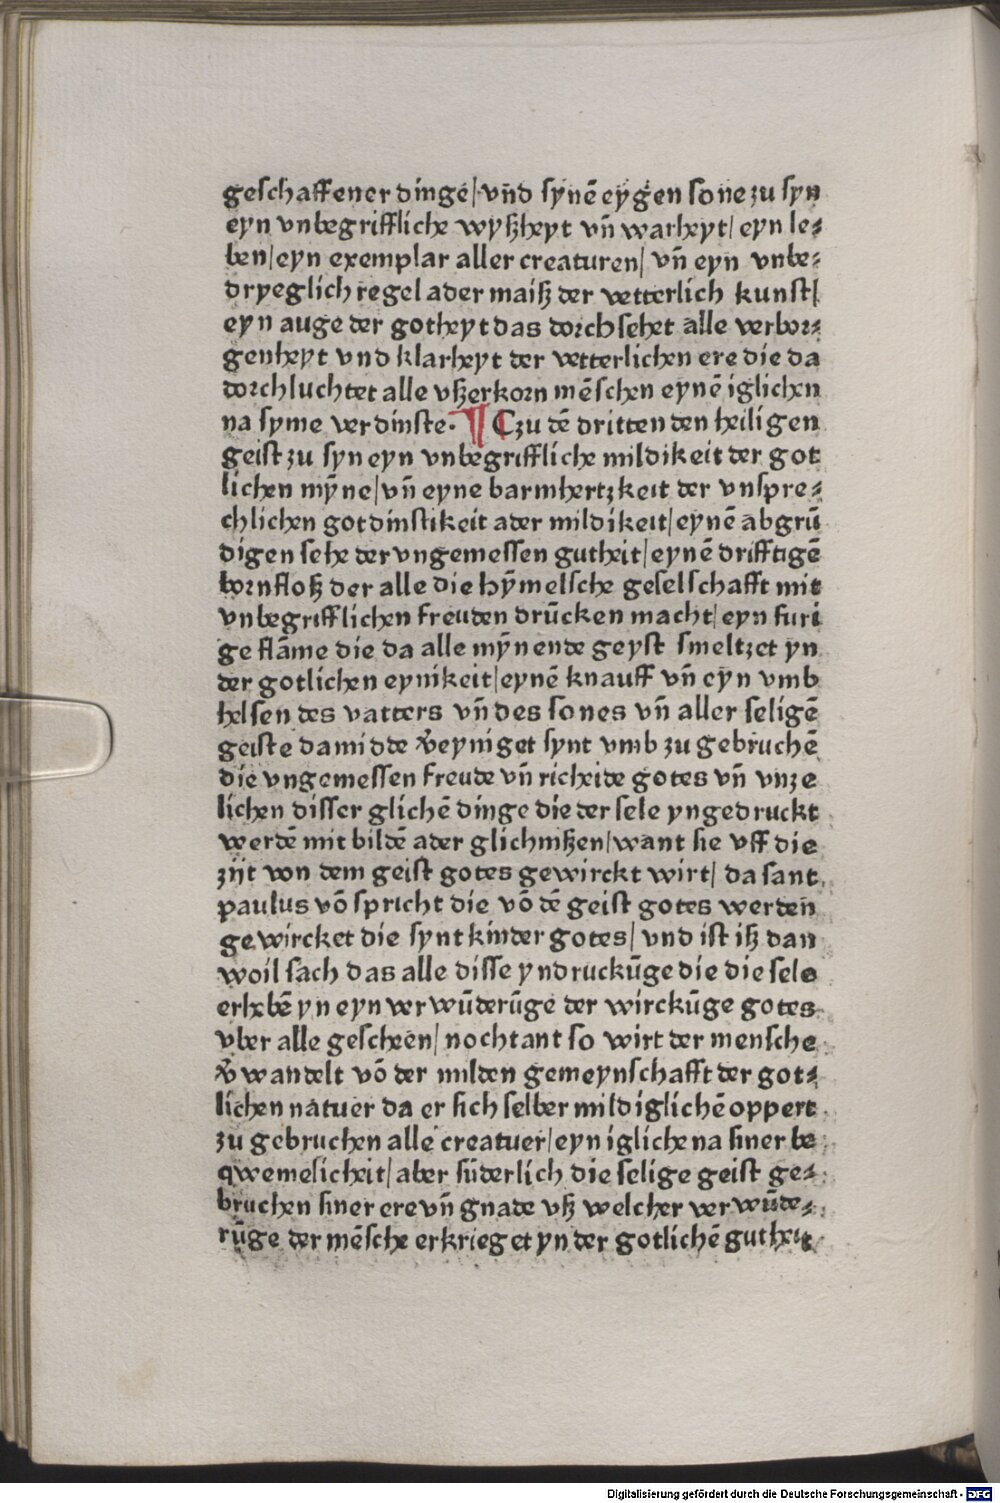 geschaffener dinge/ vñd synē eygen sone zu syn
eyn vnbegriffliche wyßheyt vñ warheyt/ eyn le⸗
ben/ eyn exemplar aller creaturen/ vñ eyn vnbe⸗
dryeglich regel ader maiß der vetterlich kunst/
eyn auge der gotheyt das dorch sehet alle verbor⸗
genheyt vnd klarheyt der vetterlichen ere die da
dorchluchtet alle vßerkorn mēschen eynē iglichen
na syme verdinste. ¶ Czu dē dritten den heiligen
geist zu syn eyn vnbegriffliche mildikeit der got
lichen mȳne/ vñ eyne barmhertzkeit der vnspre⸗
chlichen gotdinstikeit ader mildikeit/ eynē abgrū
digen sehe der vngemessen gutheit/ eynē drifftigē
bornfloß der alle die hȳmelsche geselschafft mit
vnbegrifflichen freuden drūcken macht/ eyn furi
ge flāme die da alle mȳnende geyst smeltzet yn
der gotlichen eynikeit/ eynē knauff vñ eyn vmb
helsen des vatters vñ des sones vñ aller seligē
geiste damidde v̄eyniget synt vmb zu gebruchē
die vngemessen freude vñ richeide gotes vñ vnze
lichen disser glichē dinge die der sele yngedruckt
werdē mit bildē ader glichnißen/ want sie vff die
zijt von dem geist gotes gewirckt wirt/ da sant
paulus vō spricht die vō dē geist gotes werden
gewircket die synt kinder gotes/ vnd ist iß dan
woil sach das alle disse yndruckūge die die sele
erhebē yn eyn verwūderūge der wirckūge gotes
vber alle gescheen/ nochtant so wirt der mensche
v̄wandelt vō der milden gemeynschafft der got⸗
lichen natuer da er sich selber mildiglichē oppert
zu gebruchen alle creatuer/ eyn igliche na siner be
qwemelicheit/ aber sūderlich die selige geist ge⸗
bruchen siner ere vñ gnade vß welcher verwūde⸗
rūge der mēsche erkrieget yn der gotlichē gutheit
Digitalisierung gefördert durch die Deutsche Forschungsgemeinschaft - DFG